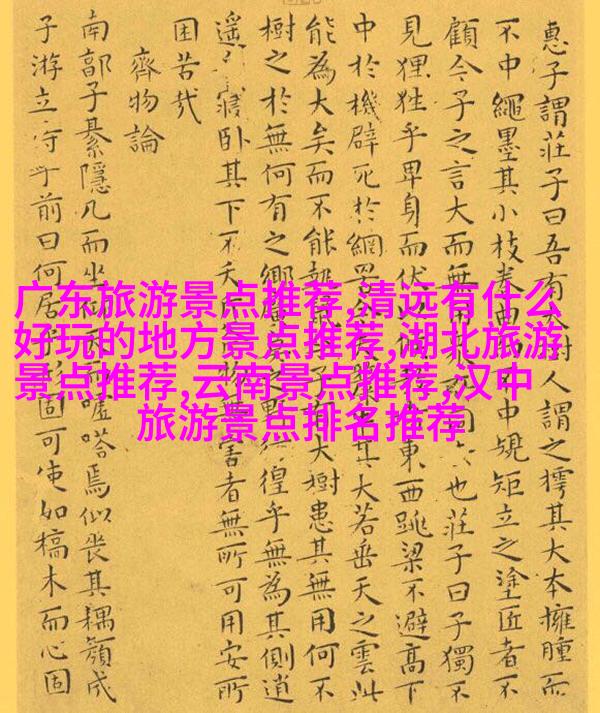 惠子謂莊子曰吾有樹人謂之樗其大本擁腫而
不中繩墨其小枝卷曲不中規矩立之塗匠者不
顧今子之言大而無用也莊子曰子獨不
見狸狌乎卑身而伏東西跳梁不避高下
中於機辟死於網罟其大若垂天之雲此
能為大矣而不能執鼠子大樹患其無用何不
樹之於無何有之鄉廣莫之野徨乎無為其側逍
遙寢臥其下不夭物無害者無所可用安所
困苦哉
齊物論
南郭子綦隱几而坐而噓嗒焉似喪其耦顏成
子游立侍乎前曰何居乎形固可使如槁木而心固
广东旅游景点推荐,清远有什么
好玩的地方景点推荐,湖北旅游
景点推荐,云南景点推荐,汉中
旅游景点排名推荐